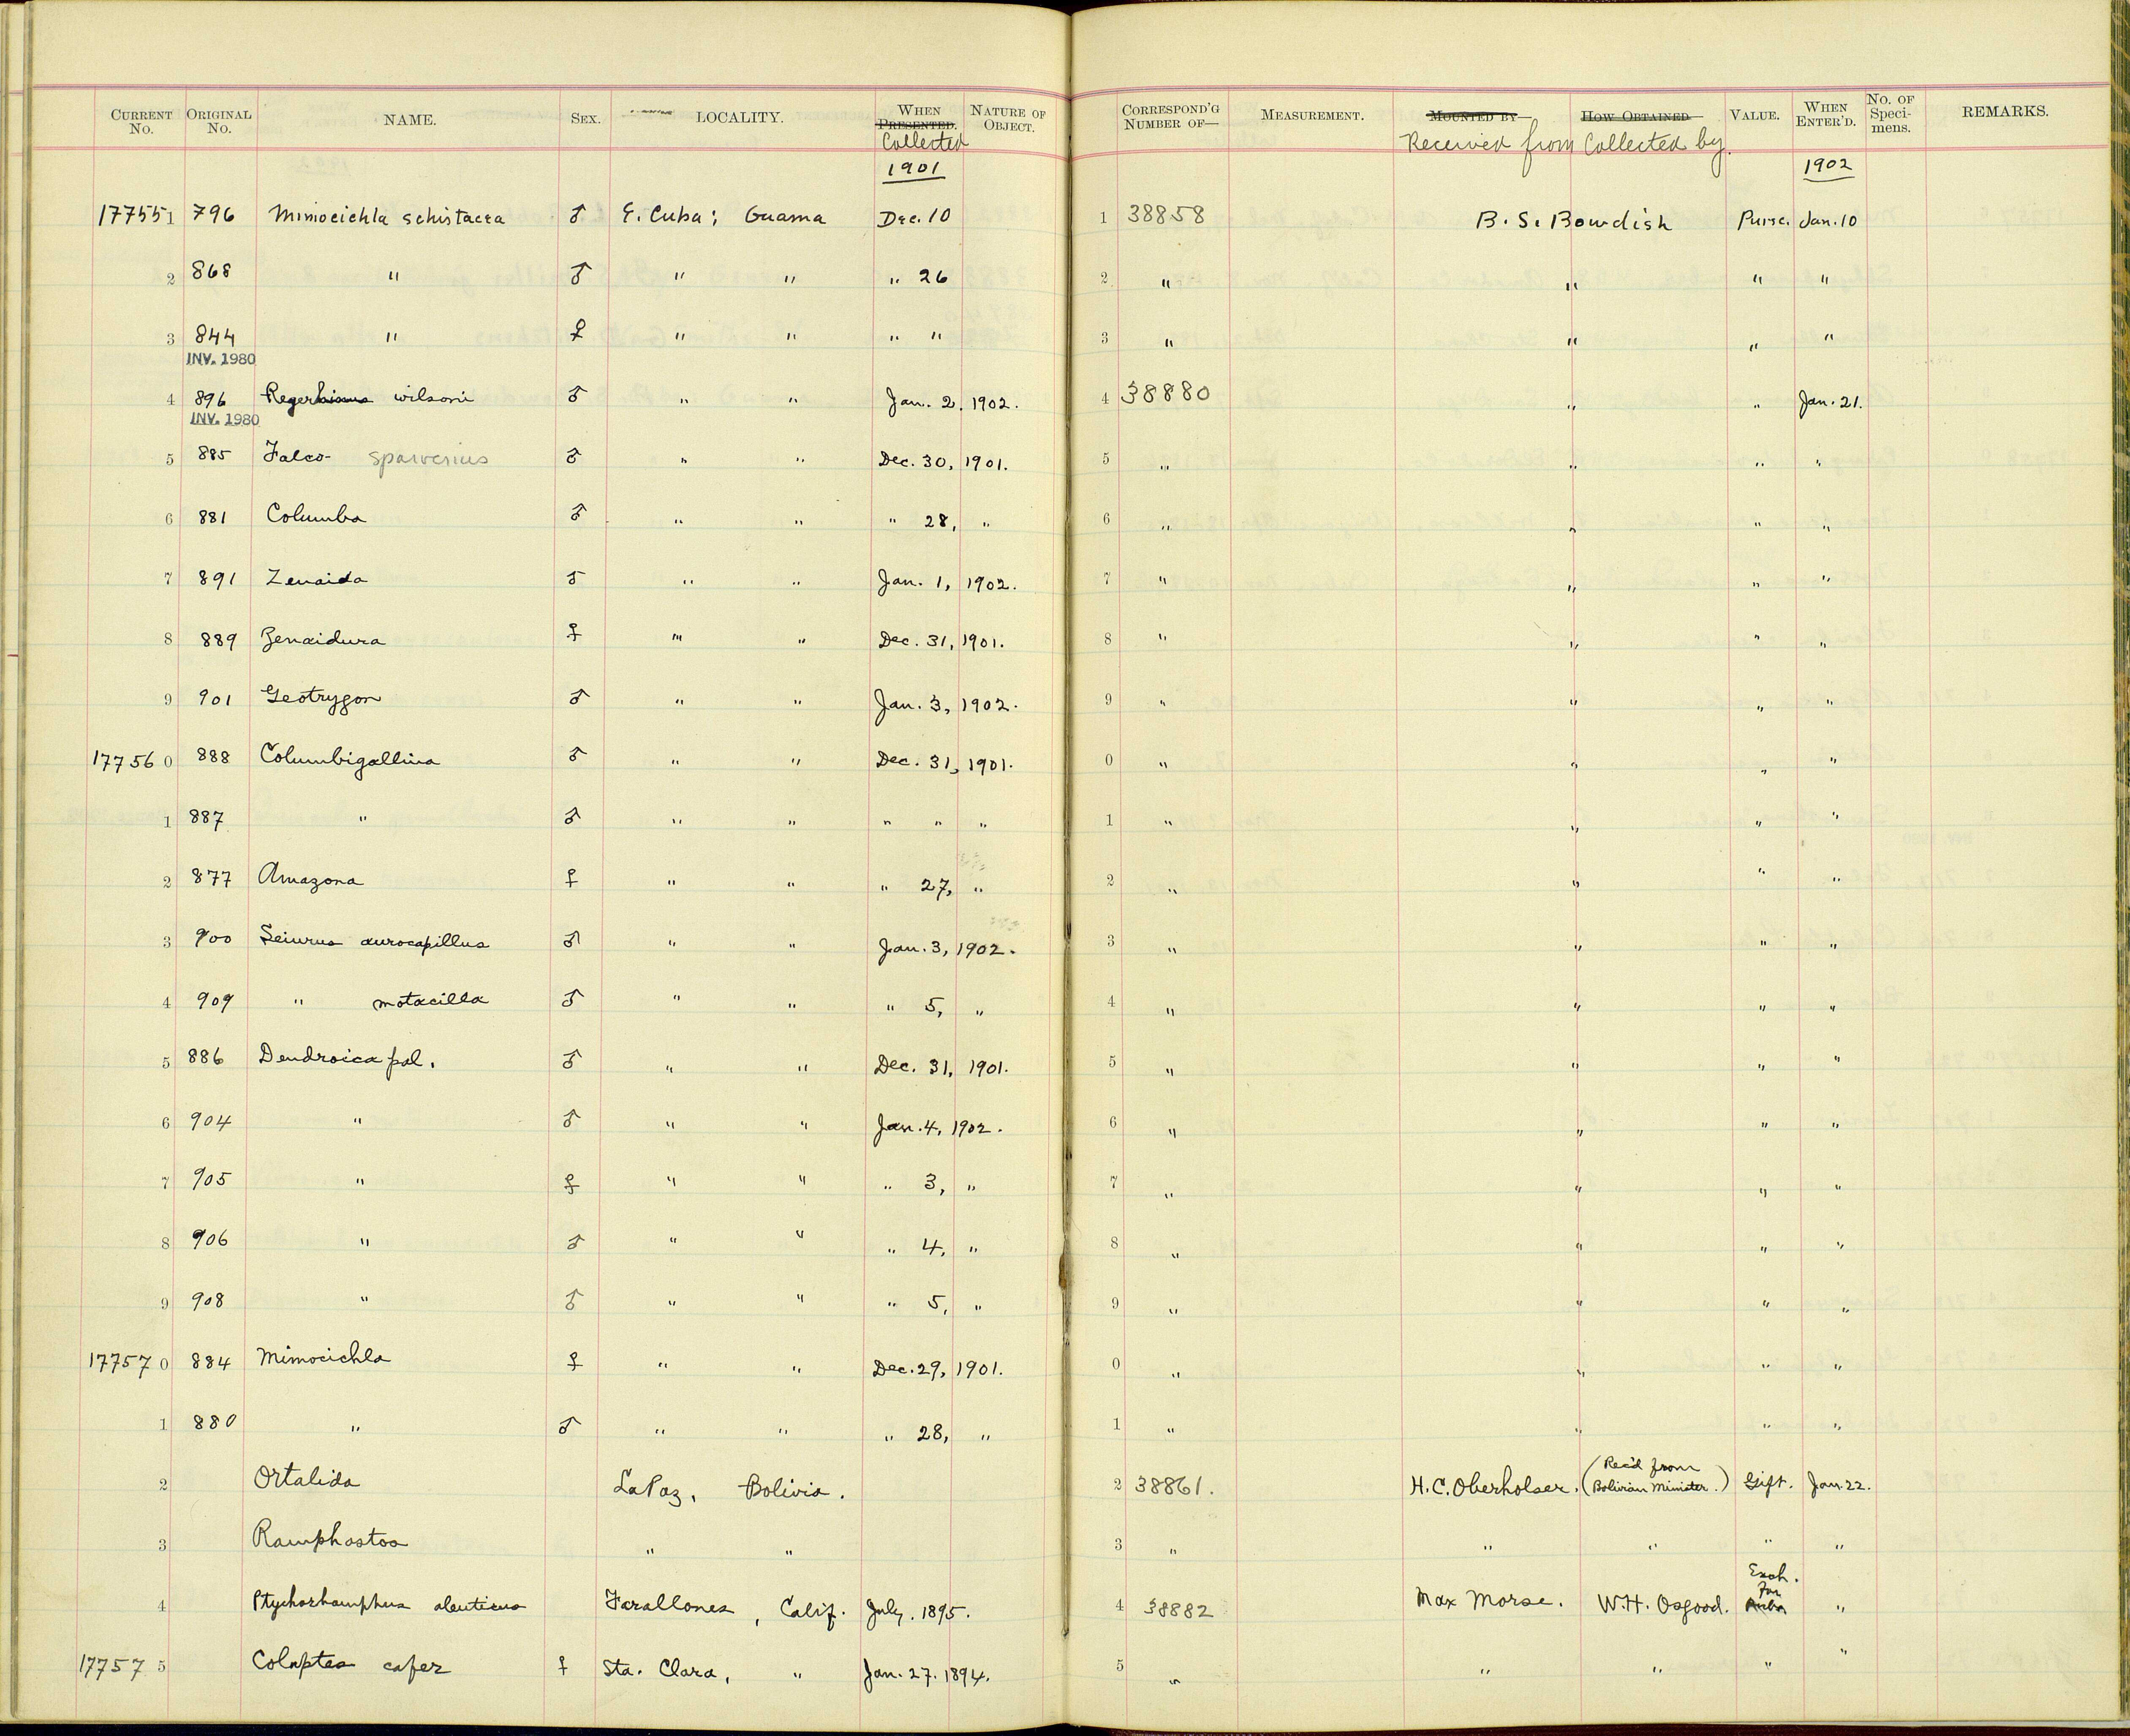 CURRENT No. ORIGINAL No. NAME. SEX. LOCALITY. WHEN PRESENTED. Collected NATURE OF OBJECT. CORRESPOND'G NUMBER OF— MEASUREMENT. MOUNTED BY— HOW OBTAINED Received from Collected by. VALUE. WHEN ENTER'D. No. OF Speci- mens. REMARKS.
1901 1902
177551 796 Mimocichla schistacea ♂ E. Cuba; Guama Dec. 10 1 38858 B. S. Bowdish Purse. Jan. 10
2 868 " ♂ " " " 26 2 " " " "
3 844 " ♀ " " " " 3 " " " "
INV. 1980
4 896 Regerhinus wilsoni ♂ " " Jan. 2, 1902. 4 38880 " " Jan. 21.
INV. 1980
5 885 Falco- sparverius ♂ " " Dec. 30, 1901. 5 " " " "
6 881 Columba ♂ " " " 28, " 6 " " " "
7 891 Zenaida ♂ " " Jan. 1, 1902. 7 " " " "
8 889 Zenaidura ♀ " " Dec. 31, 1901. 8 " " " "
9 901 Geotrygon ♂ " " Jan. 3, 1902. 9 " " " "
177560 888 Columbigallina ♂ " " Dec. 31, 1901. 0 " " " "
1 887 " ♂ " " " " " 1 " " " "
2 877 Amazona ♀ " " " 27, " 2 " " " "
3 900 Seiurus aurocapillus ♂ " " Jan. 3, 1902. 3 " " " "
4 909 " motacilla ♂ " " " 5, " 4 " " " "
5 886 Dendroica pal. ♂ " " Dec. 31, 1901. 5 " " " "
6 904 " ♂ " " Jan. 4, 1902. 6 " " " "
7 905 " ♀ " " " 3, " 7 " " " "
8 906 " ♂ " " " 4, " 8 " " " "
9 908 " ♂ " " " 5, " 9 " " " "
177570 884 Mimocichla ♀ " " Dec. 29, 1901. 0 " " " "
1 880 " ♂ " " " 28, " 1 " " " "
2 Ortalida La Paz, Bolivia. 2 38861. H. C. Oberholser. (Rec'd from Bolivian Minister.) Gift. Jan. 22.
3 Ramphastos " " 3 " " " " "
4 Ptychorhamphus aleuticus Farallones, Calif. July. 1895. 4 38882 Max Morse. W. H. Osgood. Exch. for "
177575 Colaptes cafer ♀ Sta. Clara, " Jan. 27. 1894. 5 " " " " "